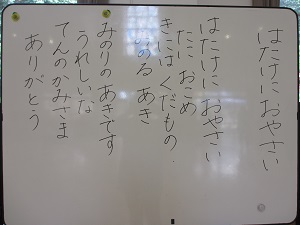 はたけに おやさい
はたけに おやさい
たに おこめ
きにはくだもの
みのる あき
みのりの あきです
うれしいな
てんのかみさま
ありがとう